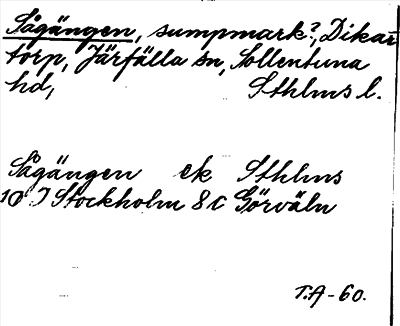 Sågängen, sumpmark?, Dikar
torp, Järfälla sn, Sollentuna
hd, Sthlms l.
Sågängen ek Sthlms
10 I Stockholm 8 c Görväln
T.A-60.